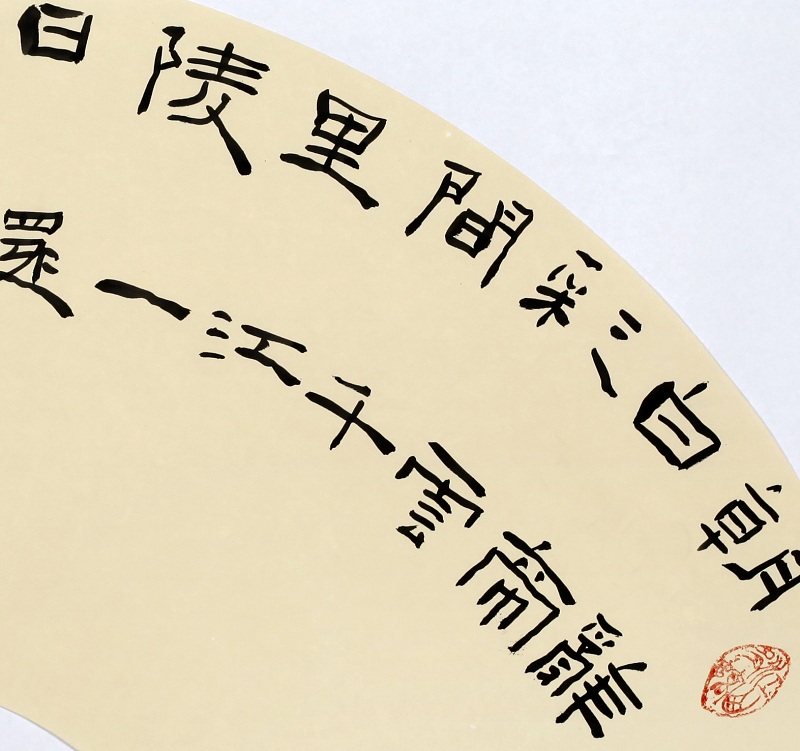 朝辭
白帝
彩雲
間千
里江
陵一
日還